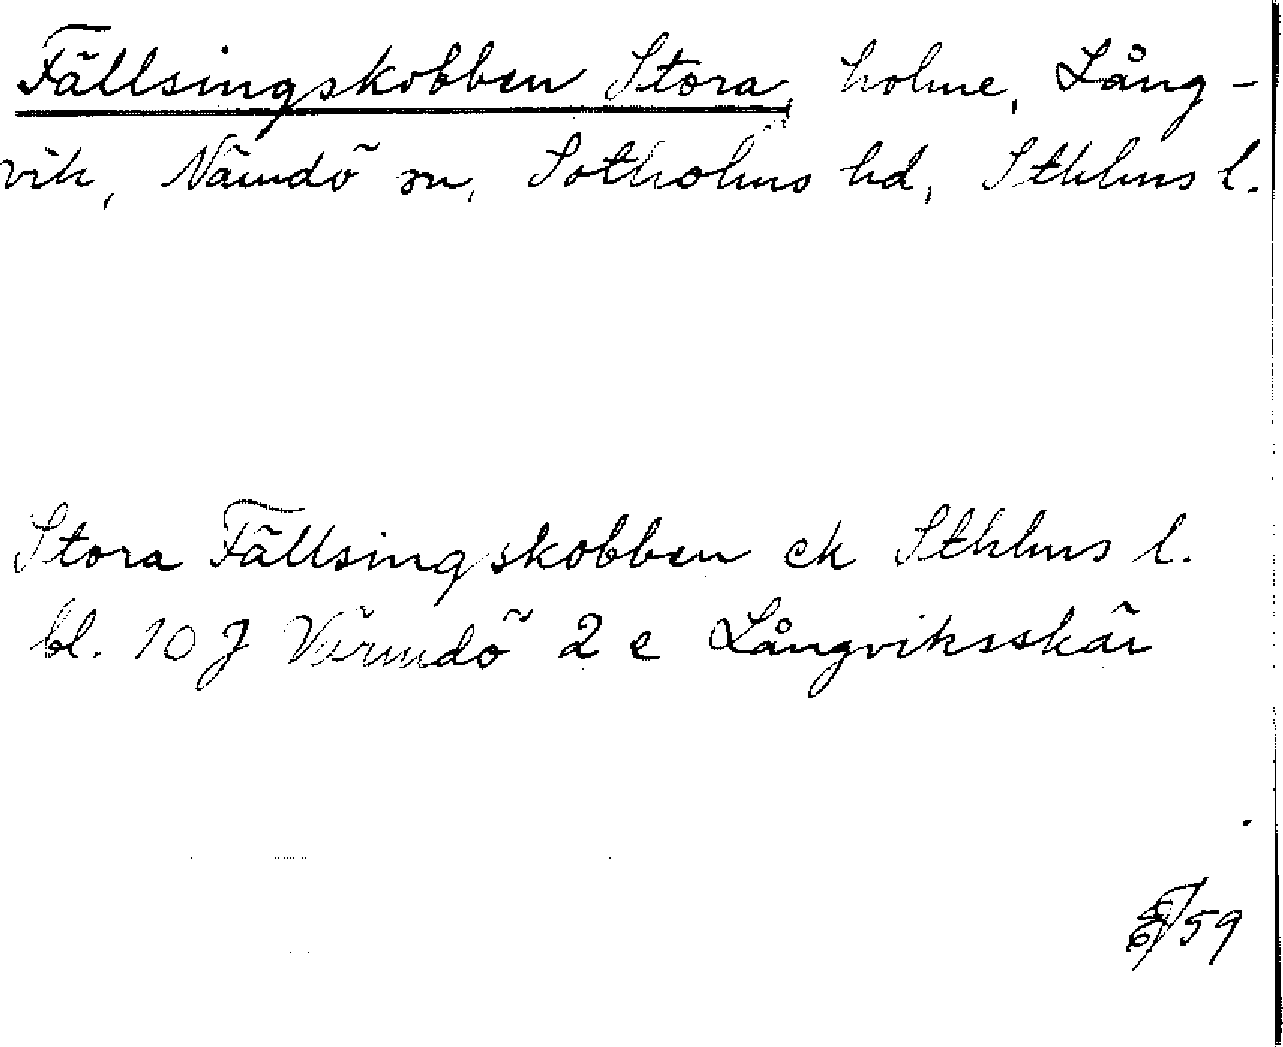 Fällsingskobben Stora, holme, Lång-
vik, Nämdö sn, Sotholms hd, Sthlms l.
Stora Fällsingskobben ek Sthlms l.
bl. 10 J Värmdö 2 e Långviksskär
5/6 59